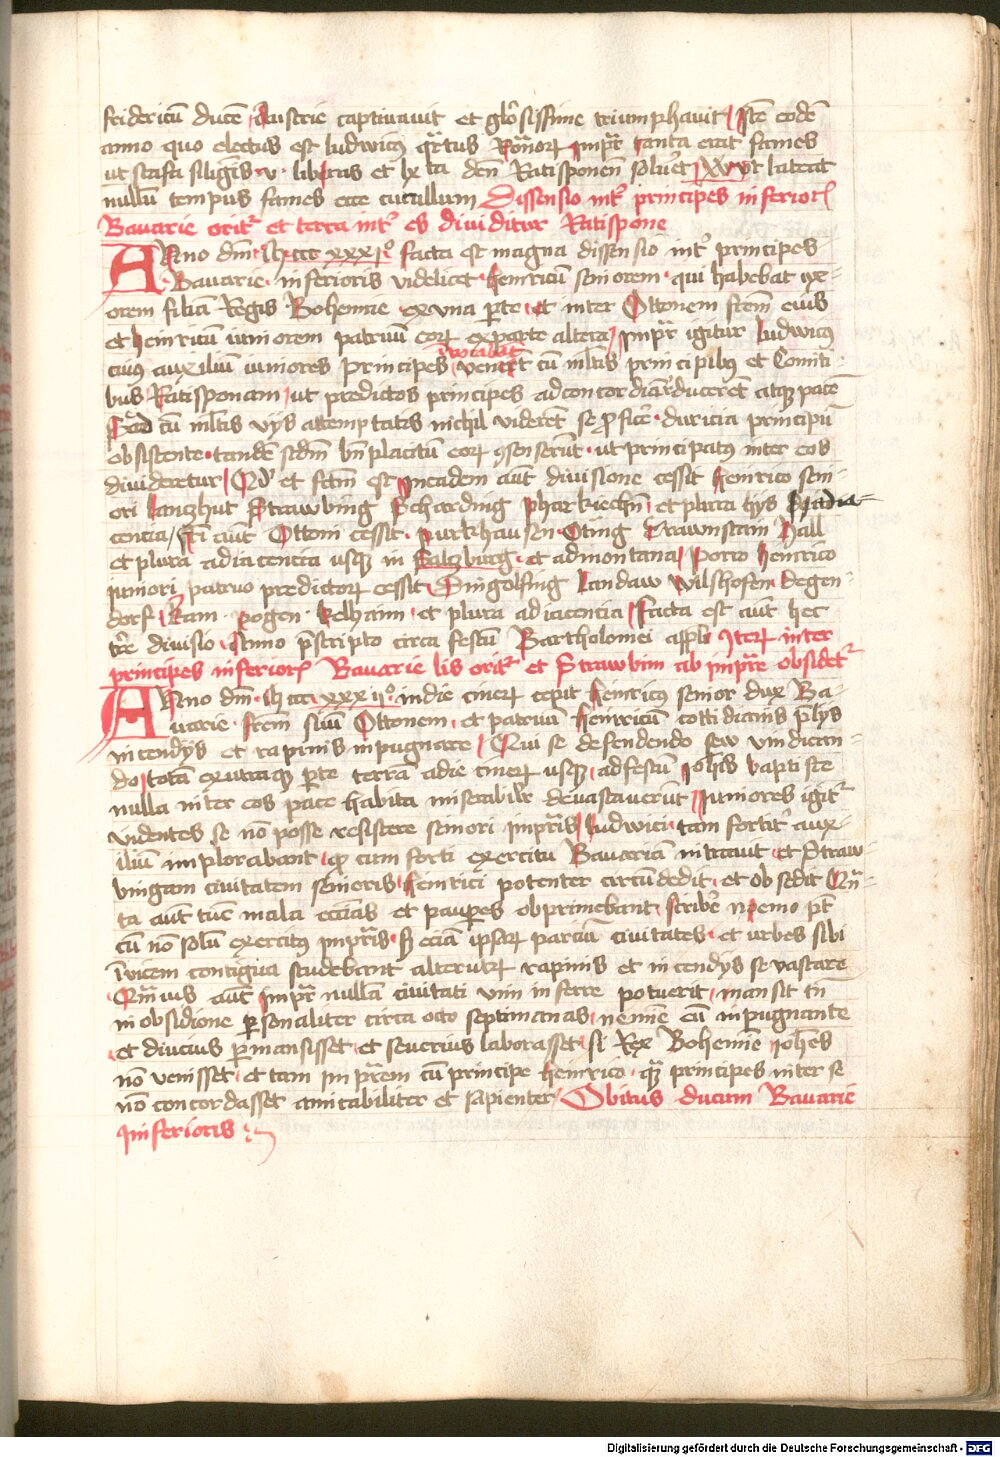 fridericū ducē Austrie captiuauit et gl'osissime triumphauit Itē eodē
anno quo electus est ludwicus q̄rtus Romorꝝ impr̄ tanta erat fames
ut scafa siligīs v libras et lx ta den̄ Ratisponen̄ soluēt ut lateat
nullū tempus fames ecce cucullum Dissensio int' principes inferior
Bauarie orit' et terra int' es diuiditur Ratispone
Anno dm̄ M ccc xxxi° facta est magna dissensio int' principes
Bauarie inferioris videlicet Heinricum seniorem qui habebat vx-
orem filiā Regis Bohemie ex vna pte et inter Ottonem frem eius
et heinricū iuniorem patruū eorꝝ ex parte altera Impr̄ igitur ludwicus
cuius auxiliū iuniores principes inuocabāt venerūt cū mltis principibus et Comiti
bus Ratisponam ut predictos principes ad concordiā duceret atque pacē
Sed cū mltis vijs attemptatis nichil viderēt se proficē duricia principū
obsistente tandē scdm bn̄placitū eorꝝ ꝯsenserūt ut principatus inter eos
diuideretur Qd' et fctm est In eadem aūt diuisione cessit Heinrico seni-
ori lantzhut Strawbing Scharding pharkirchen̄ et plura hijs adia-
cencia Sƺ aūt Ottoni cessit purkhausen Oting Trawnstain Hall
et plura adiacencia usque in Saltzburg et ad montana Porro Heinrico
iuniori patruo predictorꝝ cessit Dingolfing landaw vilshofen degen-
dorf kam pogen kelhaim et plura adiacencia Facta est aūt hec
tr̄e diuisio Anno p̄scripto circa festū Bartholomei appli Iterꝝ inter
principes inferior Bauarie lis orit' et Strawbim ab impr̄re obsidet'
Anno dm̄ M ccc xxxij° in die cinerꝝ cepit Heinricus senior dux Ba-
uarie frem suū Ottonem et patruū Heinricū cottidianis p̄lijs
incendijs et rapinis inpugnare Qui se defendendo seu vindican-
do totā ex utraque pte terrā a die cinerꝝ usque ad festū Johis baptiste
nulla inter eos pace habita miserabilir deuastauerūt Iuniores igit'
videntes se nō posse resistere seniori impr̄is ludwici tam fortit' aux-
iliū implorabant qui cum forti exercitu Bauariā intrauit et Straw-
bingam ciuitatem senioris heinrici potenter circūdedit et obsedit Quā-
ta aūt tūc mala ecciās et paupes obprimebant scribē nemo pt
cū nō solū exercitus impr̄is sƺ eciā ipsarꝝ parciū ciuitates et urbes sibi
inuicem contigua studebant alterutrꝝ rapinis et incendijs se vastare
Quāuis aūt impr̄ nullā ciuitati vim inferre potuerit mansit tn̄
in obsidione psonaliter circa octo septimanas nemie eū inpugnante
et diucius pmansisset et seuerius laborasset si Rex Bohemie Johes
nō venisset et tam imprem cū principe heinrico qm̄ principes inter se
nō concordasset amicabiliter et sapienter Obitus ducum Bauarie
Inferioris

Digitalisierung gefördert durch die Deutsche Forschungsgemeinschaft - DFG